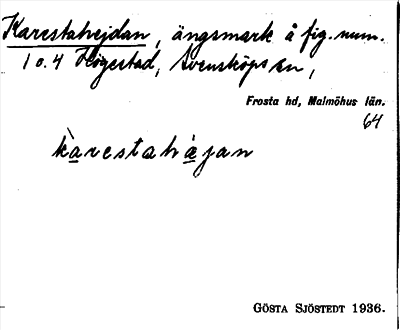 Karestahejdan, ängsmark å fig. num.
1 o. 4 Högestad, Svensköps sn,
Frosta hd, Malmöhus län.
64
kàrestahæ̀jan
GÖSTA SJÖSTEDT 1936.